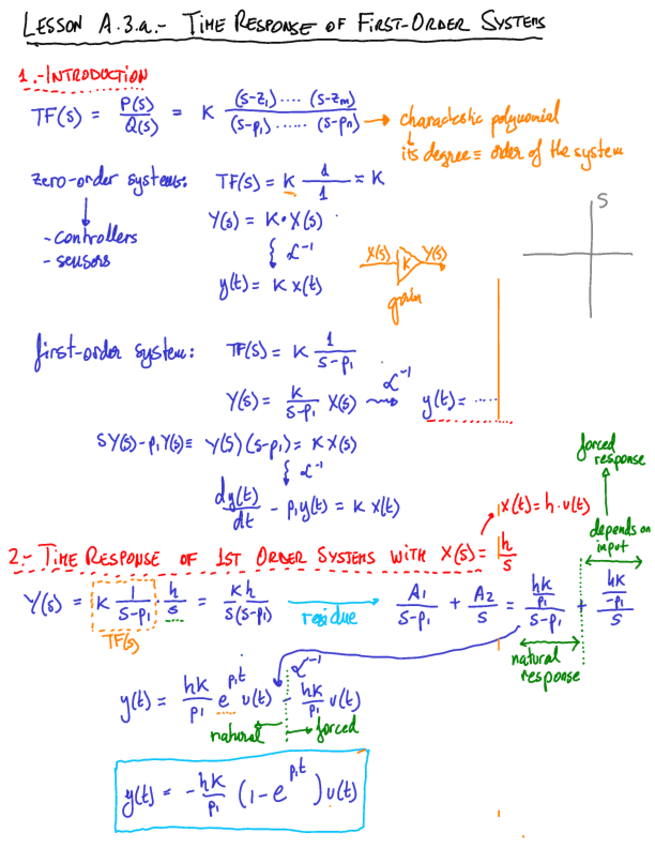 LESSON A.3.a.- TIME RESPONSE OF FIRST-ORDER SYSTEMS
1.-INTRODUCTION
TF(s) = P(s)/Q(s) = K (s-z₁)....(s-zm)/(s-p₁)......(s-pn) → charactestic polynomial
its degree ≡ order of the system
zero-order systems: TF(s) = K 1/1 = K
Y(s) = K·X(s)
-controllers
-sensors
ℒ⁻¹
y(t) = K x(t)
X(s) K Y(s)
gain
S
first-order system: TF(s) = K 1/(s-p₁)
Y(s) = K/(s-p₁) X(s) ⇝ ℒ⁻¹ y(t) = .....
SY(s)-p₁Y(s) ≡ Y(s)(s-p₁) = K X(s)
ℒ⁻¹
dy(t)/dt - p₁y(t) = K x(t)
x(t) = h·u(t)
forced response
depends on input
2.- TIME RESPONSE OF 1ST ORDER SYSTEMS WITH X(s) = h/s
Y(s) = K 1/(s-p₁) · h/s = Kh/(s(s-p₁)) residue → A₁/(s-p₁) + A₂/s = (hK/p₁)/(s-p₁) + (hK/-p₁)/s
TF(s)
natural response
ℒ⁻¹
y(t) = hK/p₁ e^(p₁t) u(t) - hK/p₁ u(t)
natural forced
y(t) = -hK/p₁ (1-e^(p₁t)) u(t)